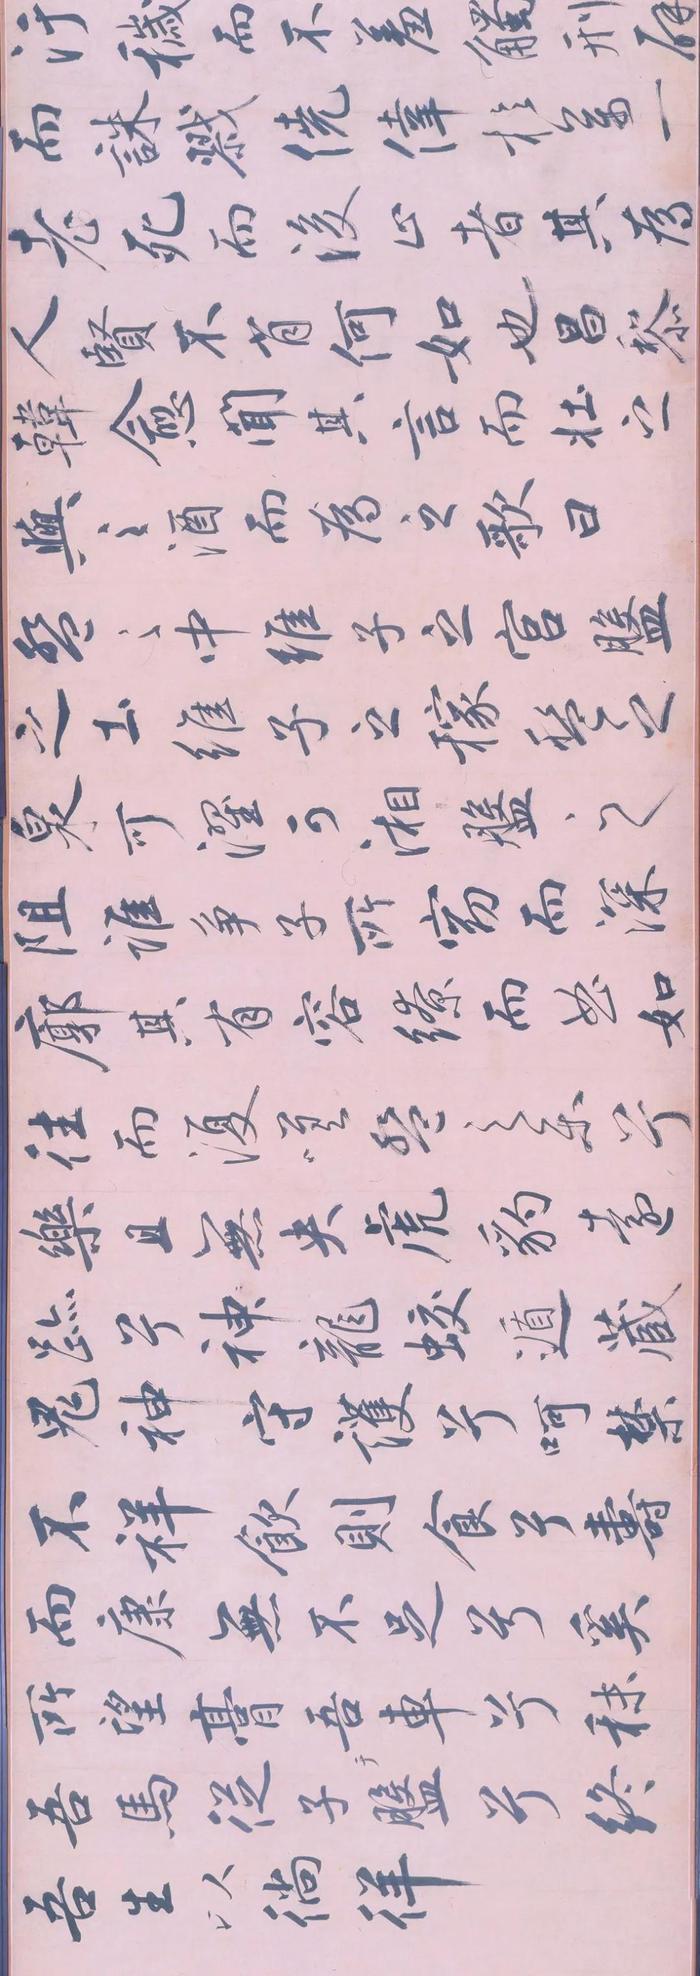 汙穢而不羞觸刑辟
而誅戮僥倖於萬一
老死而後止者其為
人賢不肖何如也昌黎
韓愈聞其言而壯之
與之酒而為之歌曰
盤之中維子之宮盤
之土維子之稼盤之
泉可濯可湘盤之
阻誰爭子所窈而深
廓其有容繚而曲如
往而復嗟盤之樂兮
樂且無央虎豹遠
跡兮神龍蛟遁藏
鬼神守護兮呵禁
不祥飲則食兮壽
而康無不足兮奚
所望膏吾車兮秣
吾馬從子于盤兮終
吾生以徜徉